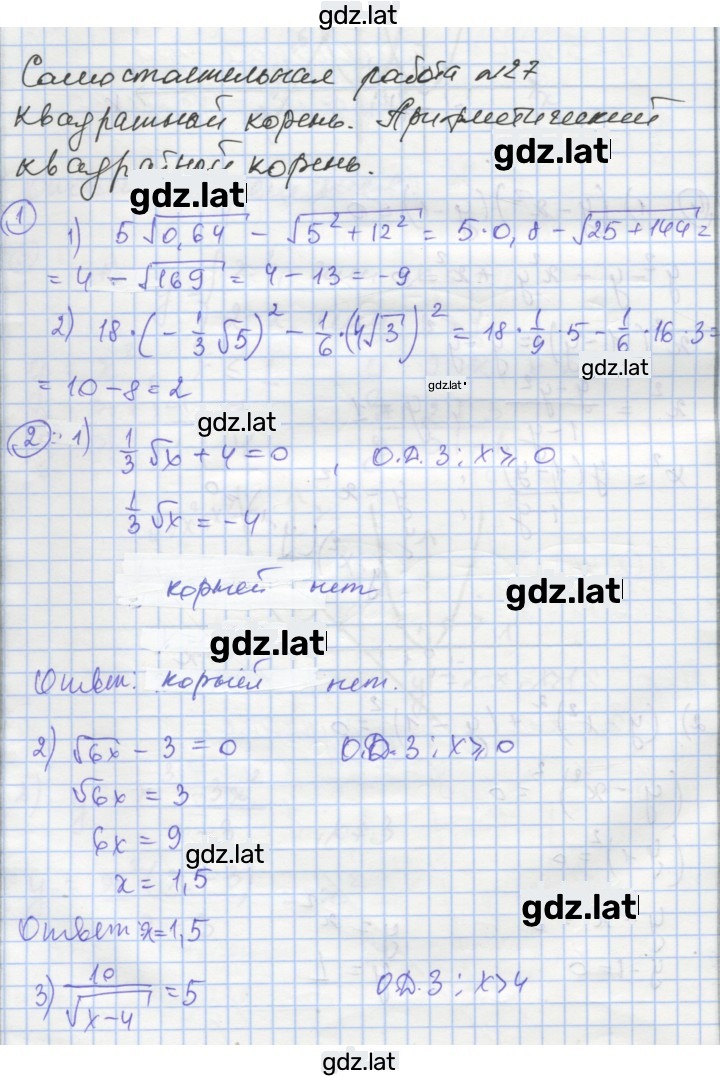 gdz.lat
Самостоятельная работа №27
Квадратный корень. Арифметический
квадратный корень.
gdz.lat
gdz.lat
① 1) 5√0,64 - √(5² + 12²) = 5·0,8 - √(25+144) =
= 4 - √169 = 4 - 13 = -9
2) 18·(-1/3 √5)² - 1/6·(4√3)² = 18·1/9·5 - 1/6·16·3 =
gdz.lat
= 10 - 8 = 2
gdz.lat
gdz.lat
②: 1) 1/3 √x + 4 = 0, О.Д.З: x ≥ 0
1/3 √x = -4
корней нет
gdz.lat
gdz.lat
Ответ: корней нет.
2) √6x - 3 = 0 О.Д.З: x ≥ 0
√6x = 3
6x = 9
gdz.lat
x = 1,5
gdz.lat
Ответ: x=1,5
3) 10/√(x-4) = 5 О.Д.З: x>4
gdz.lat